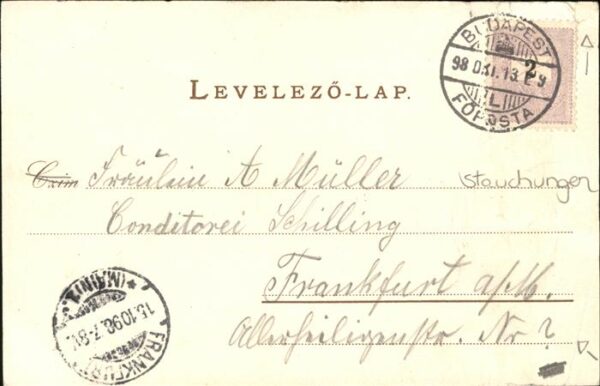 BUDAPEST
98 OKT. 13. E 9
L
FŐPOSTA
2
LEVELEZŐ-LAP.
Czim Fräulein A Müller
Stauchungen
Conditorei Schilling
Frankfurt a/M.
Allerheiligenstr. Nr ?
FRANKFURT (MAIN) 1.
15.10.98. 7-8V.